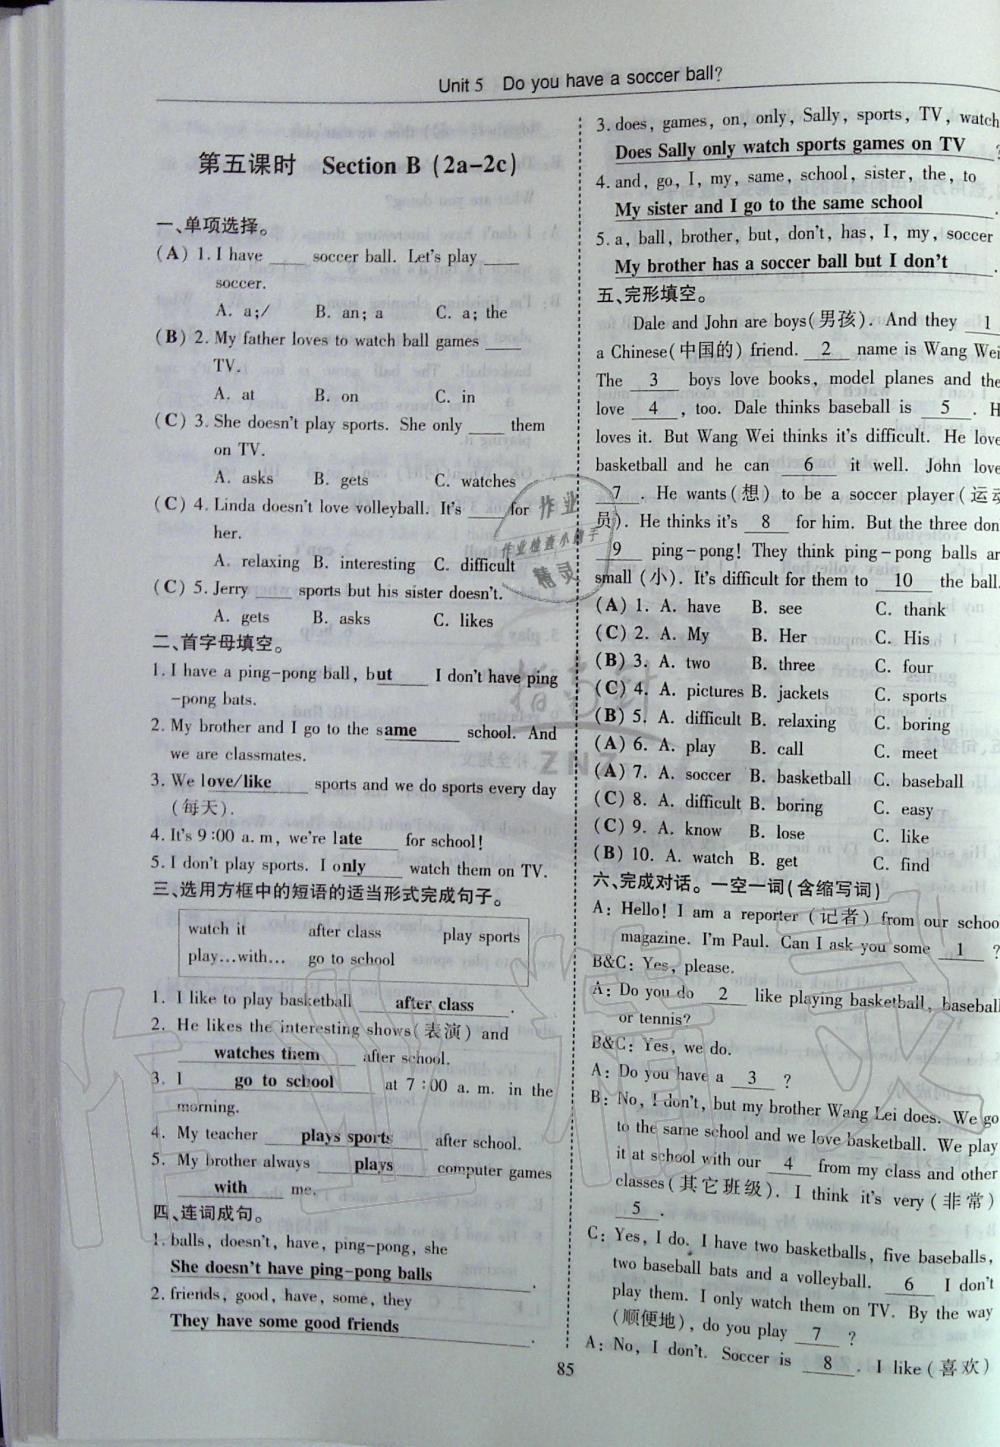 Unit 5 Do you have a soccer ball?
第五课时 Section B (2a-2c)
一、单项选择。
(A) 1. I have ____ soccer ball. Let's play ____
soccer.
A. a;/ B. an; a C. a; the
(B) 2. My father loves to watch ball games ____
TV.
A. at B. on C. in
(C) 3. She doesn't play sports. She only ____ them
on TV.
A. asks B. gets C. watches
(C) 4. Linda doesn't love volleyball. It's ____ for
her.
A. relaxing B. interesting C. difficult
(C) 5. Jerry ____ sports but his sister doesn't.
A. gets B. asks C. likes
二、首字母填空。
1. I have a ping-pong ball, but I don't have ping
-pong bats.
2. My brother and I go to the same school. And
we are classmates.
3. We love/like sports and we do sports every day
(每天).
4. It's 9:00 a. m, we're late for school!
5. I don't play sports. I only watch them on TV.
三、选用方框中的短语的适当形式完成句子。
watch it after class play sports
play…with… go to school
1. I like to play basketball after class.
2. He likes the interesting shows(表演) and
watches them after school.
3. I go to school at 7:00 a. m. in the
morning.
4. My teacher plays sports after school.
5. My brother always plays computer games
with me.
四、连词成句。
1. balls, doesn't, have, ping-pong, she
She doesn't have ping-pong balls.
2. friends, good, have, some, they
They have some good friends.
85
3. does, games, on, only, Sally, sports, TV, watch
Does Sally only watch sports games on TV ?
4. and, go, I, my, same, school, sister, the, to
My sister and I go to the same school.
5. a, ball, brother, but, don't, has, I, my, soccer
My brother has a soccer ball but I don't.
五、完形填空。
Dale and John are boys(男孩). And they 1
a Chinese(中国的) friend. 2 name is Wang Wei
The 3 boys love books, model planes and the
love 4 , too. Dale thinks baseball is 5 . H
loves it. But Wang Wei thinks it's difficult. He love
basketball and he can 6 it well. John love
7 . He wants(想) to be a soccer player(运动
员). He thinks it's 8 for him. But the three don
9 ping-pong! They think ping-pong balls ar
small (小). It's difficult for them to 10 the ball.
(A) 1. A. have B. see C. thank
(C) 2. A. My B. Her C. His
(B) 3. A. two B. three C. four
(C) 4. A. pictures B. jackets C. sports
(B) 5. A. difficult B. relaxing C. boring
(A) 6. A. play B. call C. meet
(A) 7. A. soccer B. basketball C. baseball
(C) 8. A. difficult B. boring C. easy
(C) 9. A. know B. lose C. like
(B) 10. A. watch B. get C. find
六、完成对话。一空一词(含缩写词)
A: Hello! I am a reporter (记者) from our schoo
magazine. I'm Paul. Can I ask you some 1 ?
B&C: Yes, please.
A: Do you do 2 like playing basketball, baseball
or tennis?
B&C: Yes, we do.
A: Do you have a 3 ?
B: No, I don't, but my brother Wang Lei does. We go
to the same school and we love basketball. We play
it at school with our 4 from my class and other
classes(其它班级). I think it's very (非常)
5 .
C: Yes, I do. I have two basketballs, five baseballs,
two baseball bats and a volleyball. 6 I don't
play them. I only watch them on TV. By the way
(顺便地), do you play 7 ?
A: No, I don't. Soccer is 8 . I like(喜欢)
作业
作业检查小助手
精灵